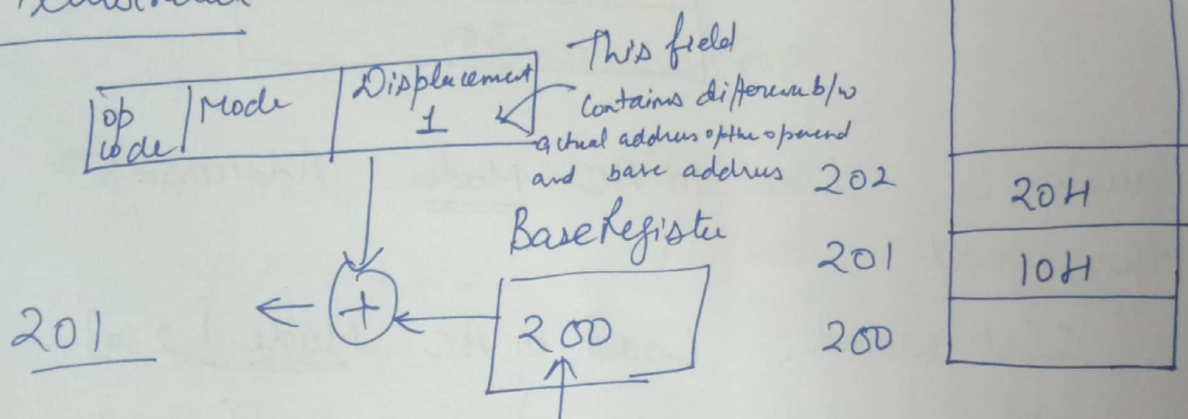 op code
Mode
Displacement
1
This field
contains difference b/w
actual address of the operand
and base address
Base Register
200
201
202
201
200
20H
10H